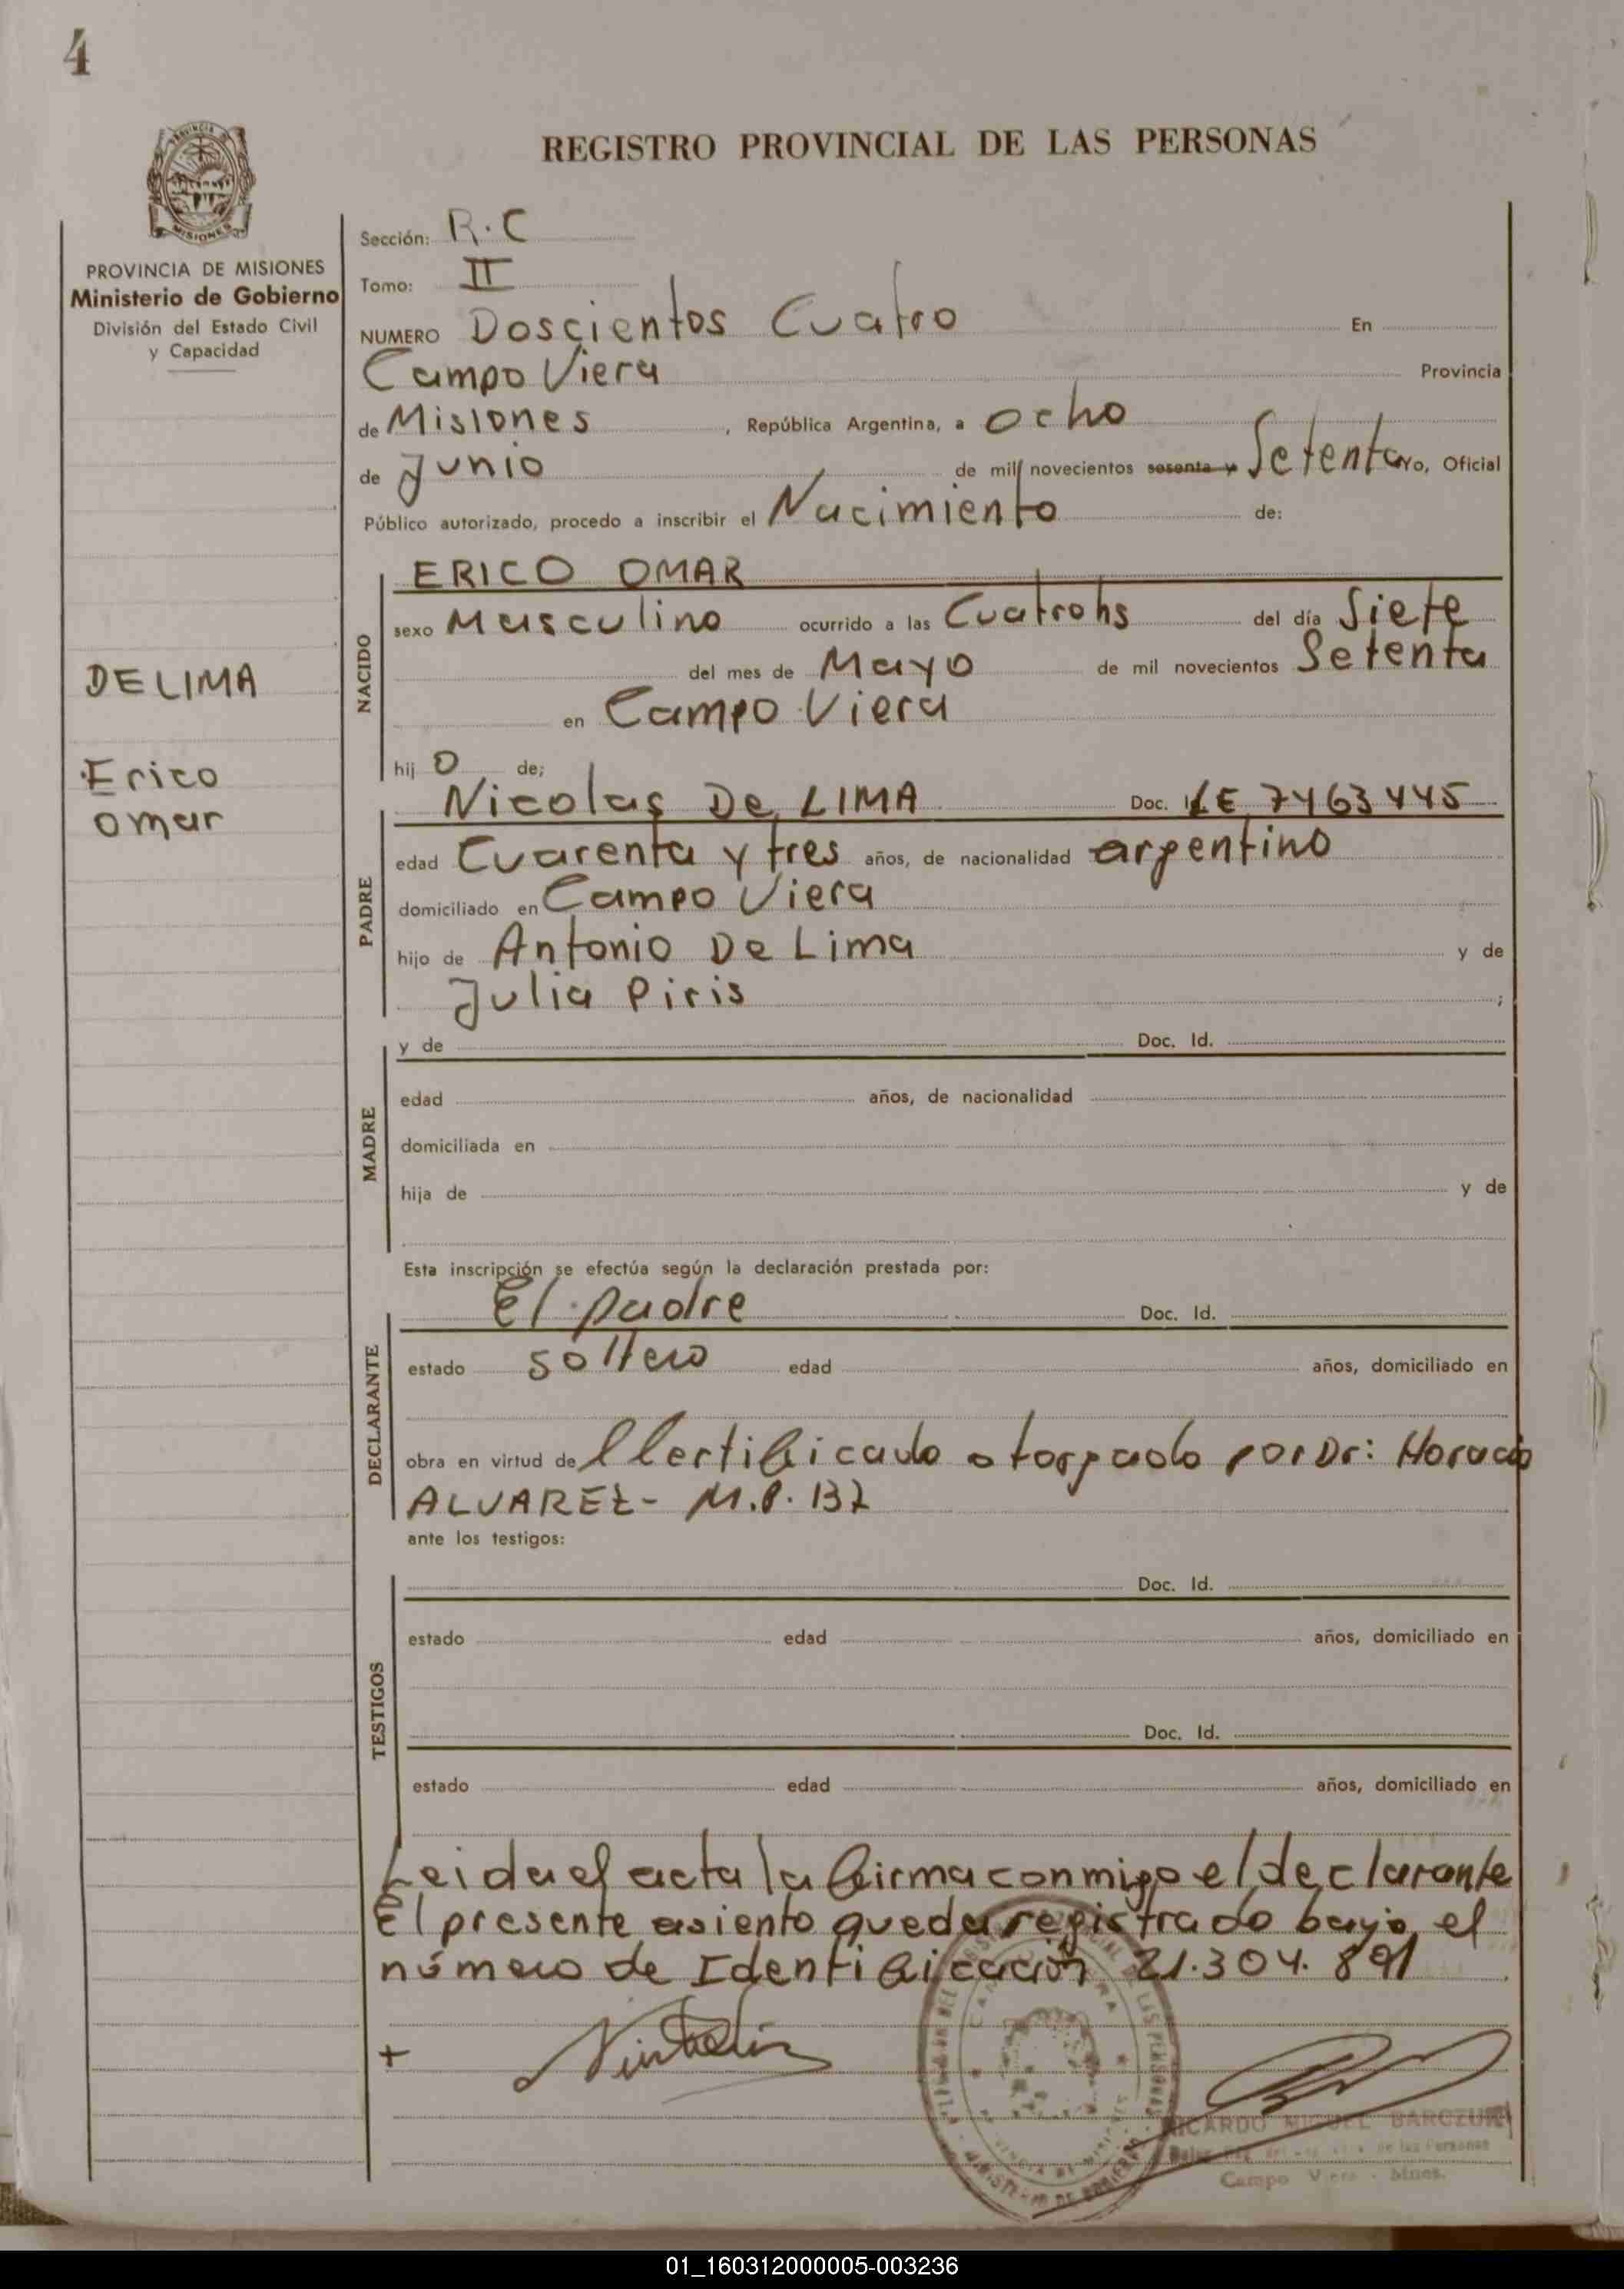 4
REGISTRO PROVINCIAL DE LAS PERSONAS
PROVINCIA DE MISIONES
Ministerio de Gobierno
División del Estado Civil
y Capacidad
DELIMA
Erico
omar
Sección: R.C
Tomo: II
NUMERO Doscientos Cuatro En
Campo Viera Provincia
de Misiones, República Argentina, a ocho
de Junio de mil novecientos sesenta y Setenta Yo, Oficial
Público autorizado, procedo a inscribir el Nacimiento de:
NACIDO
ERICO OMAR
sexo Masculino ocurrido a las Cuatro hs del día Siete
del mes de Mayo de mil novecientos Setenta
en Campo Viera
hij o de;
PADRE
Nicolas De LIMA Doc. LE 7463445
edad Cuarenta y tres años, de nacionalidad argentino
domiciliado en Campo Viera
hijo de Antonio De Lima y de
Julia Piris ;
MADRE
y de Doc. Id.
edad años, de nacionalidad
domiciliada en
hija de y de
Esta inscripción se efectúa según la declaración prestada por:
DECLARANTE
El padre Doc. Id.
estado soltero edad años, domiciliado en
obra en virtud de Certificado otorgado por Dr: Horacio
ALVAREZ - M.P. 137
ante los testigos:
TESTIGOS
Doc. Id.
estado edad años, domiciliado en
Doc. Id.
estado edad años, domiciliado en
Leida el acta la firma conmigo el declarante
El presente asiento queda registrado bajo el
número de Identificación 21.304.891
+
RICARDO MIGUEL BARCZUK
de las Personas
Campo Viera - Mnes.
01_160312000005-003236